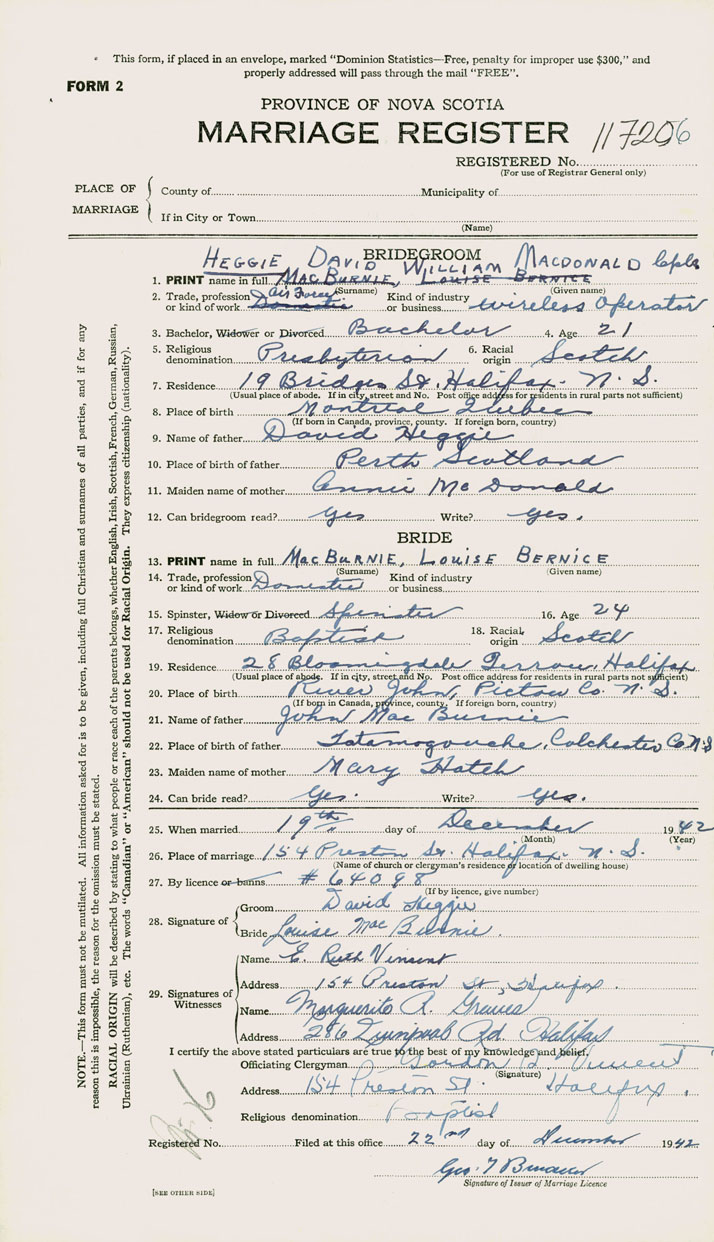 This form, if placed in an envelope, marked "Dominion Statistics—Free, penalty for improper use $300," and
properly addressed will pass through the mail "FREE".
FORM 2
PROVINCE OF NOVA SCOTIA
MARRIAGE REGISTER 117206
REGISTERED No.
(For use of Registrar General only)
PLACE OF MARRIAGE
County of Municipality of
If in City or Town
(Name)
BRIDEGROOM
HEGGIE DAVID WILLIAM MACDONALD
1. PRINT name in full MACBURNIE, LOUISE BERNICE
(Surname) (Given name)
2. Trade, profession or kind of work Air Force Domestic Kind of industry or business wireless Operator
3. Bachelor, Widower or Divorced Bachelor 4. Age 21
5. Religious denomination Presbyterian 6. Racial origin Scotch
7. Residence 19 Bridges St. Halifax. N. S.
(Usual place of abode. If in city, street and No. Post office address for residents in rural parts not sufficient)
8. Place of birth Montreal Quebec
(If born in Canada, province, county. If foreign born, country)
9. Name of father David Heggie
10. Place of birth of father Perth Scotland
11. Maiden name of mother Annie McDonald
12. Can bridegroom read? Yes Write? Yes.
BRIDE
13. PRINT name in full MACBURNIE, LOUISE BERNICE
(Surname) (Given name)
14. Trade, profession or kind of work Domestic Kind of industry or business
15. Spinster, Widow or Divorced Spinster 16. Age 24
17. Religious denomination Baptist 18. Racial origin Scotch
19. Residence 28 Bloomingdale Terrace, Halifax
(Usual place of abode. If in city, street and No. Post office address for residents in rural parts not sufficient)
20. Place of birth River John, Pictou Co. N. S.
(If born in Canada, province, county. If foreign born, country)
21. Name of father John MacBurnie
22. Place of birth of father Tatamagouche, Colchester Co N.S
23. Maiden name of mother Mary Hatch
24. Can bride read? Yes. Write? Yes.
25. When married 19th day of December 1942
(Month) (Year)
26. Place of marriage 154 Preston St. Halifax. N. S.
(Name of church or clergyman's residence or location of dwelling house)
27. By licence or banns # 64098
(If by licence, give number)
28. Signature of Groom David Heggie
Bride Louise MacBurnie.
29. Signatures of Witnesses
Name E. Ruth Vincent
Address 154 Preston St, Halifax.
Name Marguerite A. Graves
Address 286 Quinpool Rd. Halifax
I certify the above stated particulars are true to the best of my knowledge and belief.
Officiating Clergyman Gordon Vincent
(Signature)
Address 154 Preston St. Halifax.
Religious denomination Baptist
Registered No. Filed at this office 22nd day of December 1942
Geo. T
Signature of Issuer of Marriage Licence
[SEE OTHER SIDE]
NOTE.—This form must not be mutilated. All information asked for is to be given, including full Christian and surnames of all parties, and if for any
reason this is impossible, the reason for the omission must be stated.
RACIAL ORIGIN will be described by stating to what people or race each of the parents belongs, whether English, Irish, Scottish, French, German, Russian,
Ukrainian (Ruthenian), etc. The words "Canadian" or "American" should not be used for Racial Origin. They express citizenship (nationality).